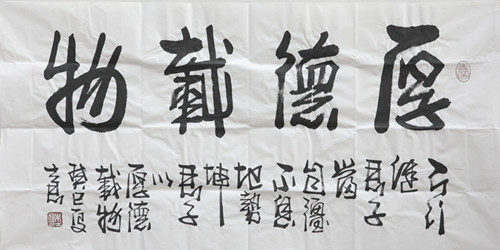 厚德載物
天行
健
君子
當
自強
不息
地勢
坤
君子
以
厚德
載物
癸巳夏